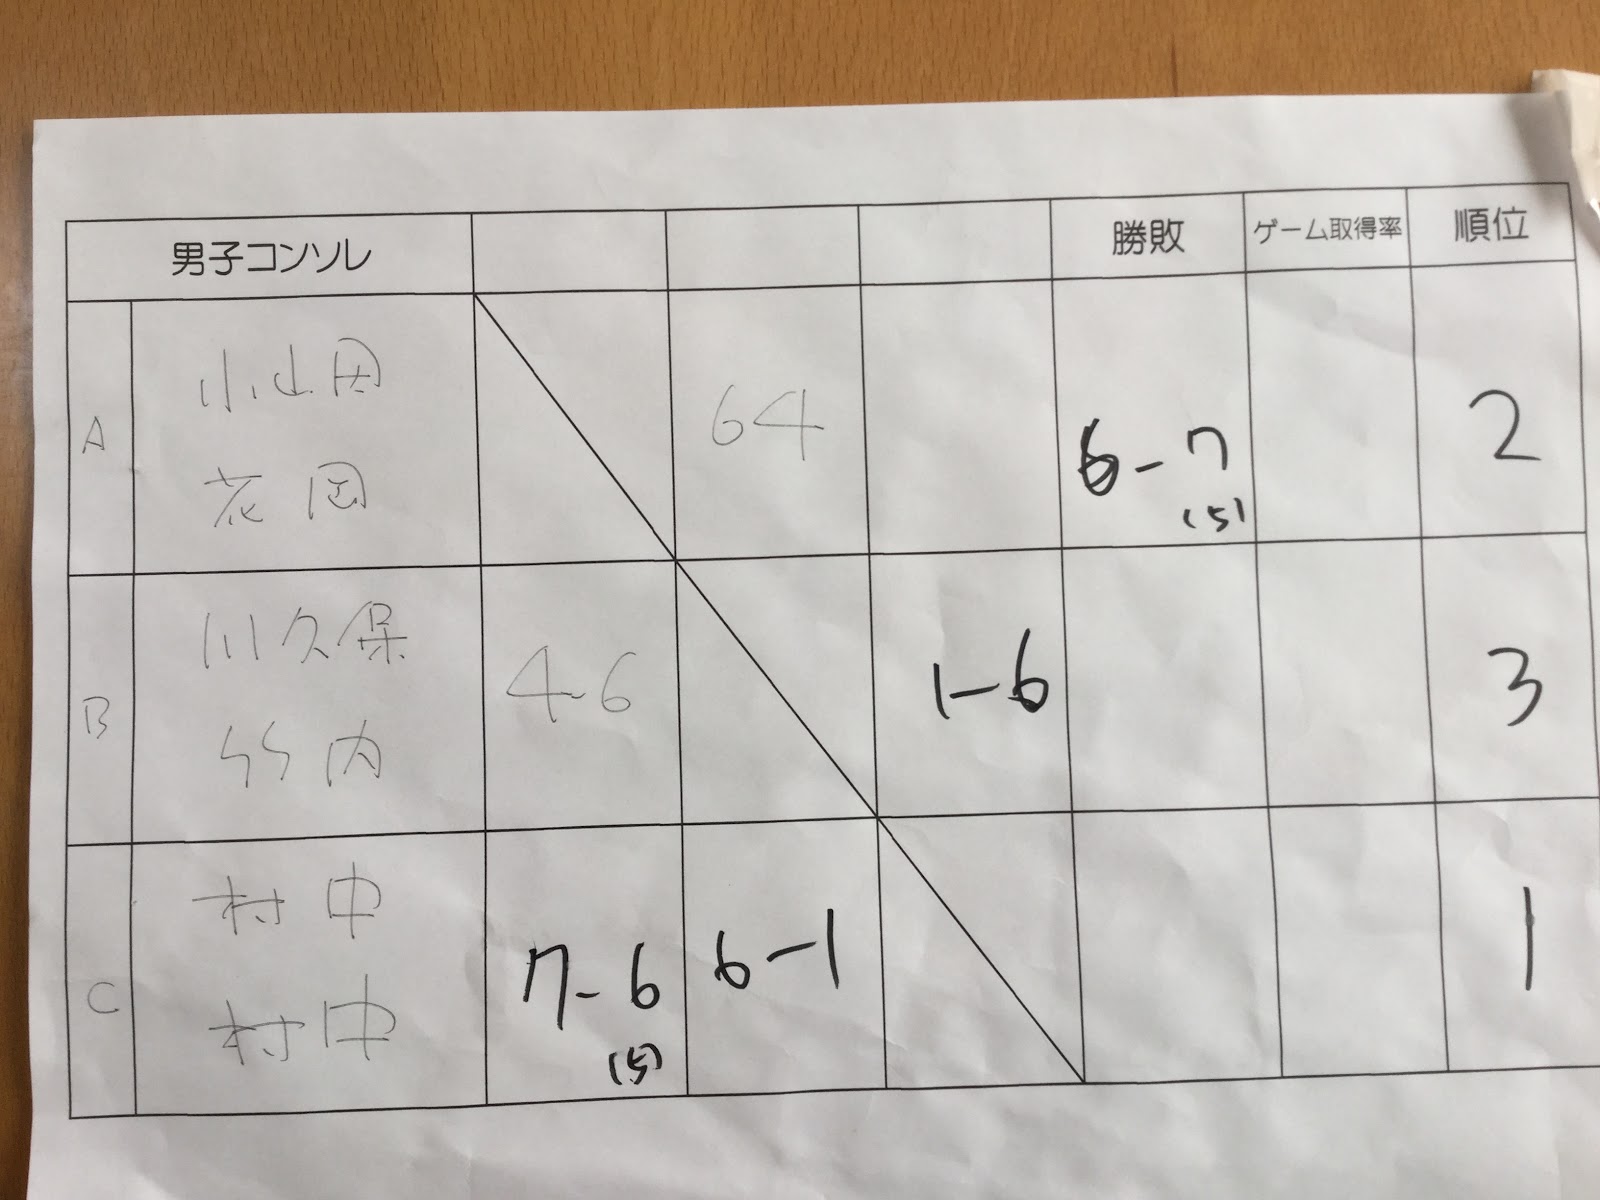 男子コンソレ 勝敗 ゲーム取得率 順位
A 小山田 64 6-7 2
花岡 (5)
B 川久保 4-6 1-6 3
竹内
C 村中 7-6 6-1 1
村中 (5)